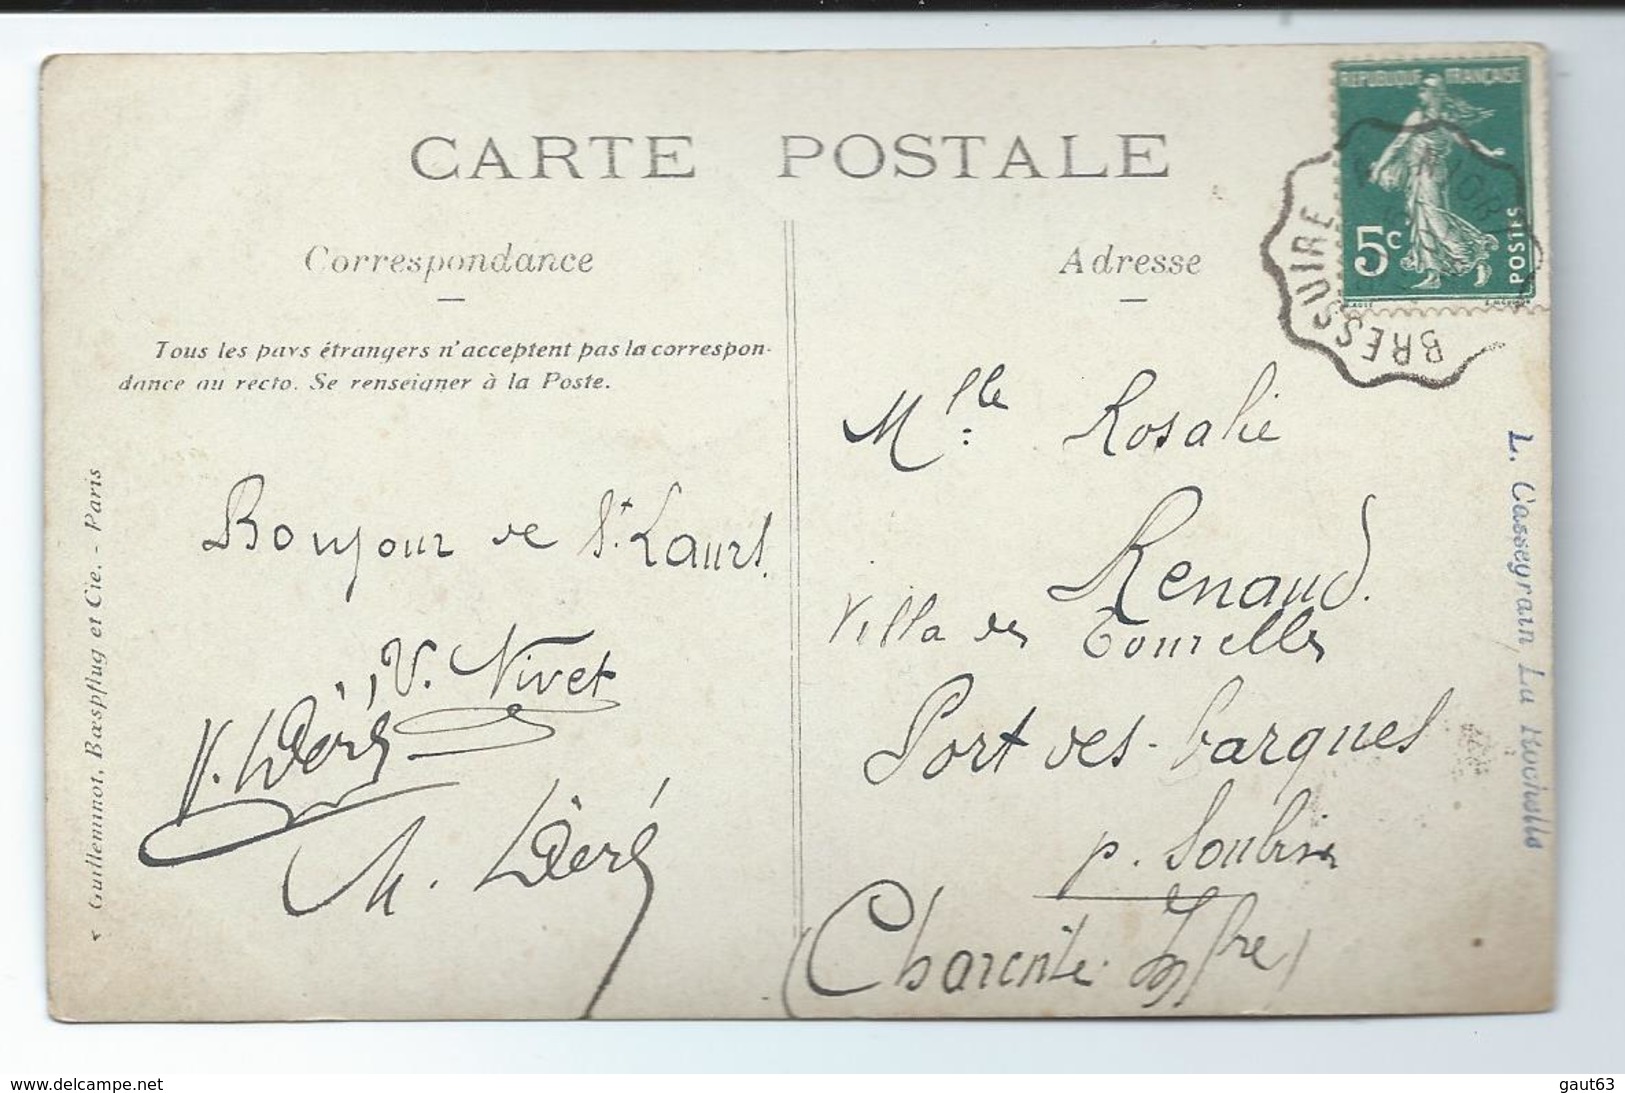 CARTE POSTALE
Correspondance
Tous les pays étrangers n'acceptent pas la correspon-
dance au recto. Se renseigner à la Poste.
Bonjour de St. Laurs.
V. Nivet
Guilleminot, Bœspflug et Cie. - Paris
Adresse
REPUBLIQUE FRANÇAISE
5c
POSTES
BRESSUIRE
Mlle Rosalie
Renaud.
Villa des Tourelles
Port des-barques
p. Soubise
(Charente Infre)
L. Cassegrain, La Rochelle
www.delcampe.net
gaut63